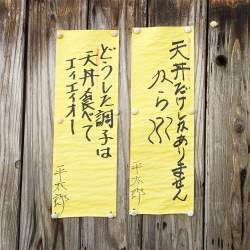 天丼だけじゃありません
平太郎
どうした調子は
天丼食べて
エイエイオー
平太郎